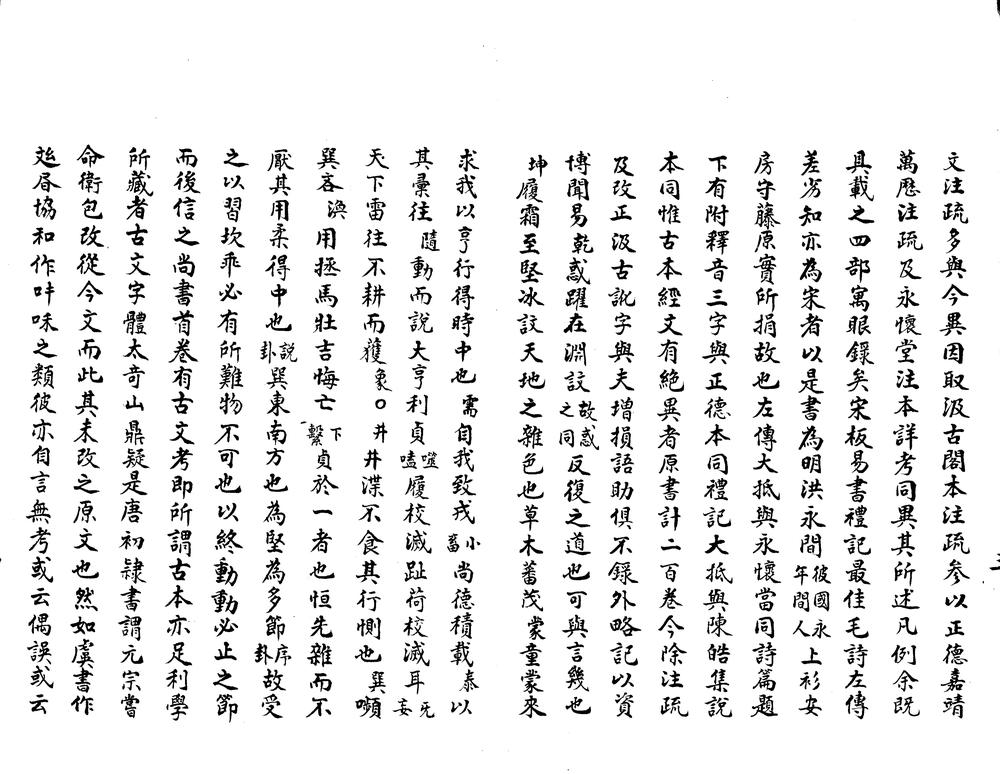 文注疏多與今異因取汲古閣本注疏參以正德嘉靖
萬歷注疏及永懷堂注本詳考同異其所述凡例余既
具載之四部寓眼錄矣宋板易書禮記最佳毛詩左傳
差劣知亦為宋者以是書為明洪永間彼國永年間人上衫安
房守藤原實所捐故也左傳大抵與永懷當同詩篇題
下有附釋音三字與正德本同禮記大抵與陳皓集說
本同惟古本經文有絕異者原書計二百卷今除注疏
及改正汲古訛字與夫增損語助俱不錄外略記以資
博聞易乾惑躍在淵註故惑之同反復之道也可與言幾也
坤履霜至堅冰註天地之雜色也草木蕃茂蒙童蒙來
求我以亨行得時中也需自我致戎小畜尚德積載泰以
其彙往隨動而說大亨利貞噬嗑履校滅趾荷校滅耳无妄
天下雷往不耕而獲象○井井渫不食其行惻也巽嚬
巽吝渙用拯馬壯吉悔亡下繫貞於一者也恒先雜而不
厭其用柔得中也說卦巽東南方也為堅為多節序卦故受
之以習坎乖必有所難物不可也以終動動必止之節
而後信之尚書首卷有古文考即所謂古本亦足利學
所藏者古文字體太奇山鼎疑是唐初隸書謂元宗嘗
命衛包改從今文而此其未改之原文也然如虞書作
𣦼昬協和作叶咊之類彼亦自言無考或云偶誤或云